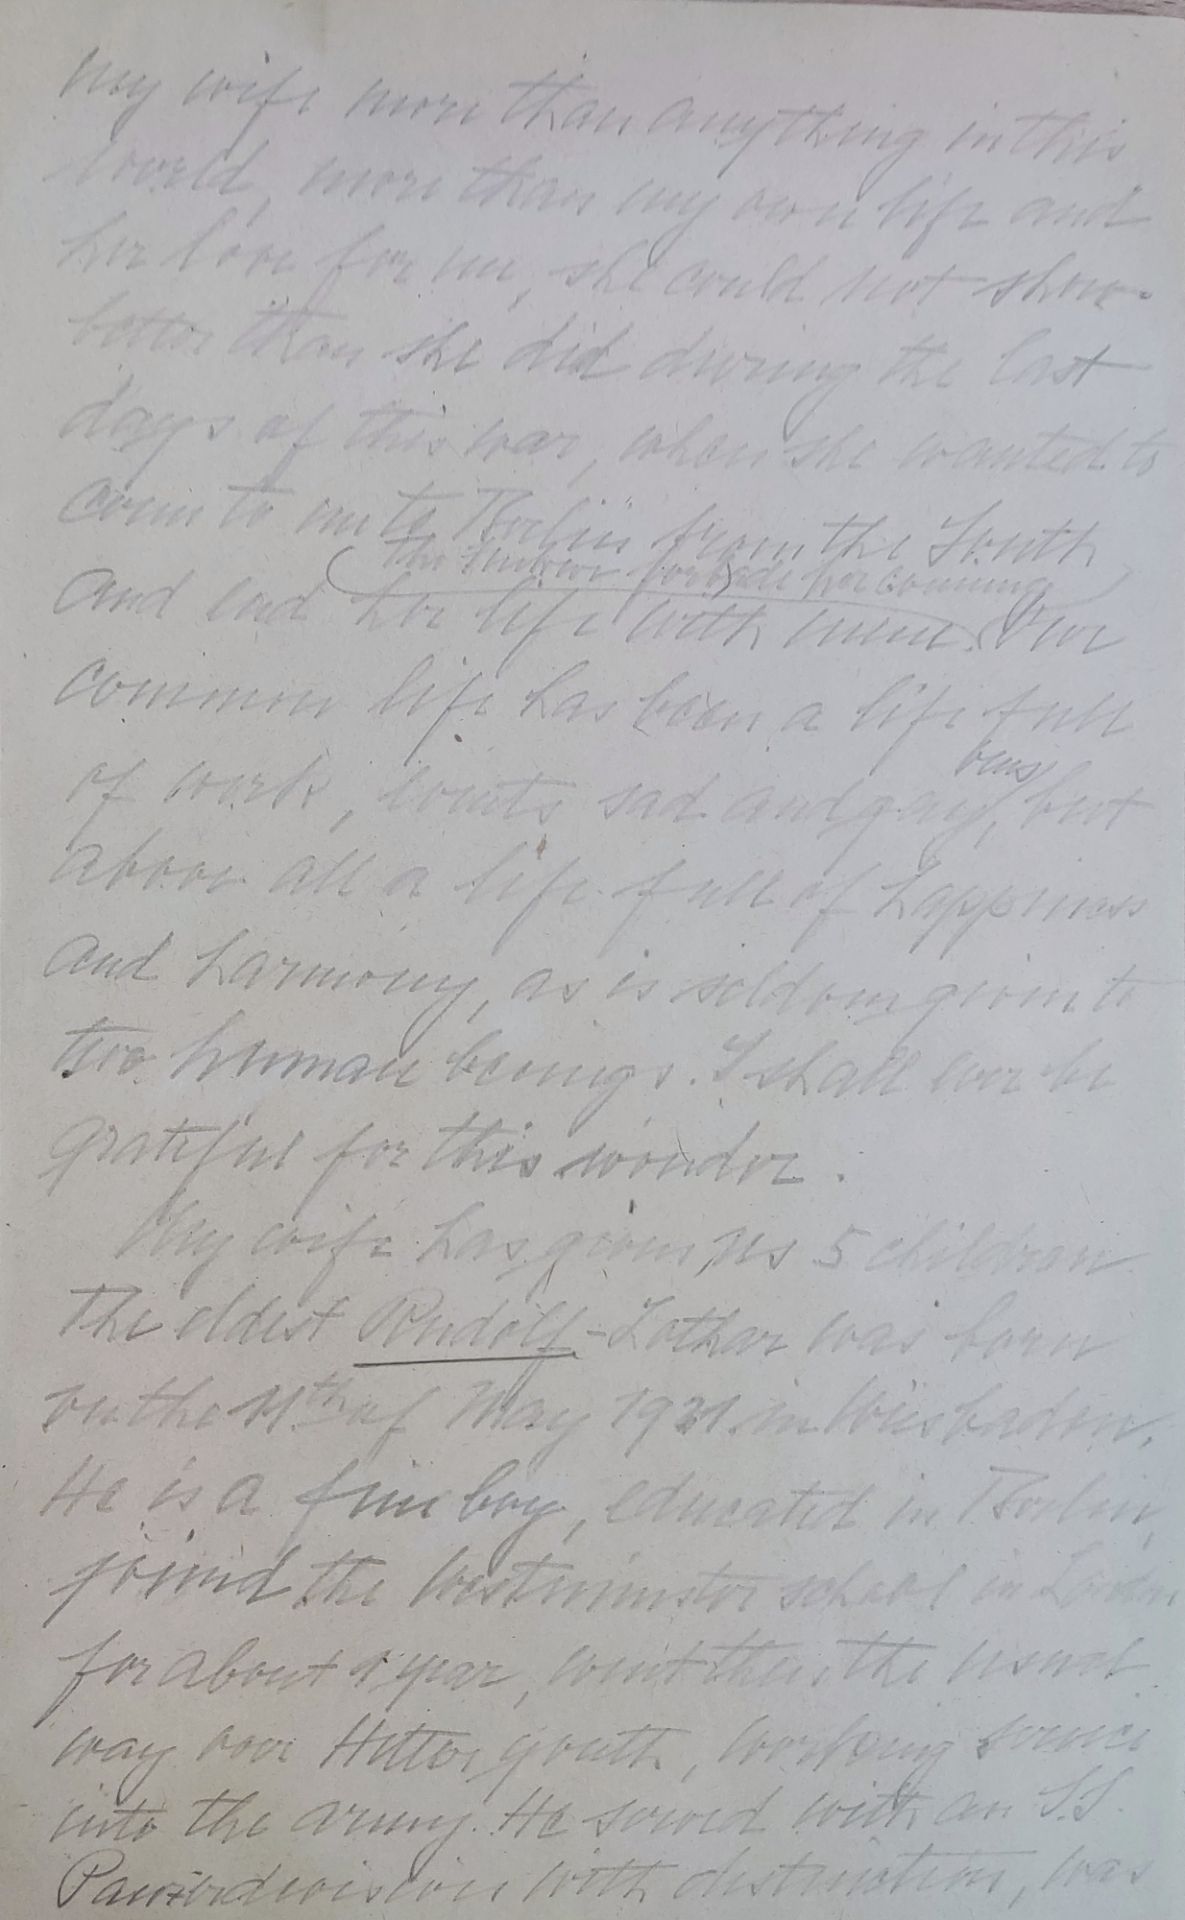 my wife more than anything in this
world, more than my own life and
her love for me, she could not show
better than she did during the last
days of this war, when she wanted to
come to me to Berlin from the South
(the Führer forbade her coming)
and end her life with mine. Our
common life has been a life full
of work, events sad and gay
but
above all a life full of happiness
and harmony, as is seldom given to
two human beeings. I shall ever be
grateful for this wonder.
My wife has given us 5 children
The eldest Rudolf-Lothar was born
on the 11th of May 1921 in Wiesbaden.
He is a fine boy, educated in Berlin,
joined the Westminster school in London
for about 1 year, went then the usual
way over Hitler youth, working service
into the army. He served with an S.S.
Panzerdivision with distinction, was